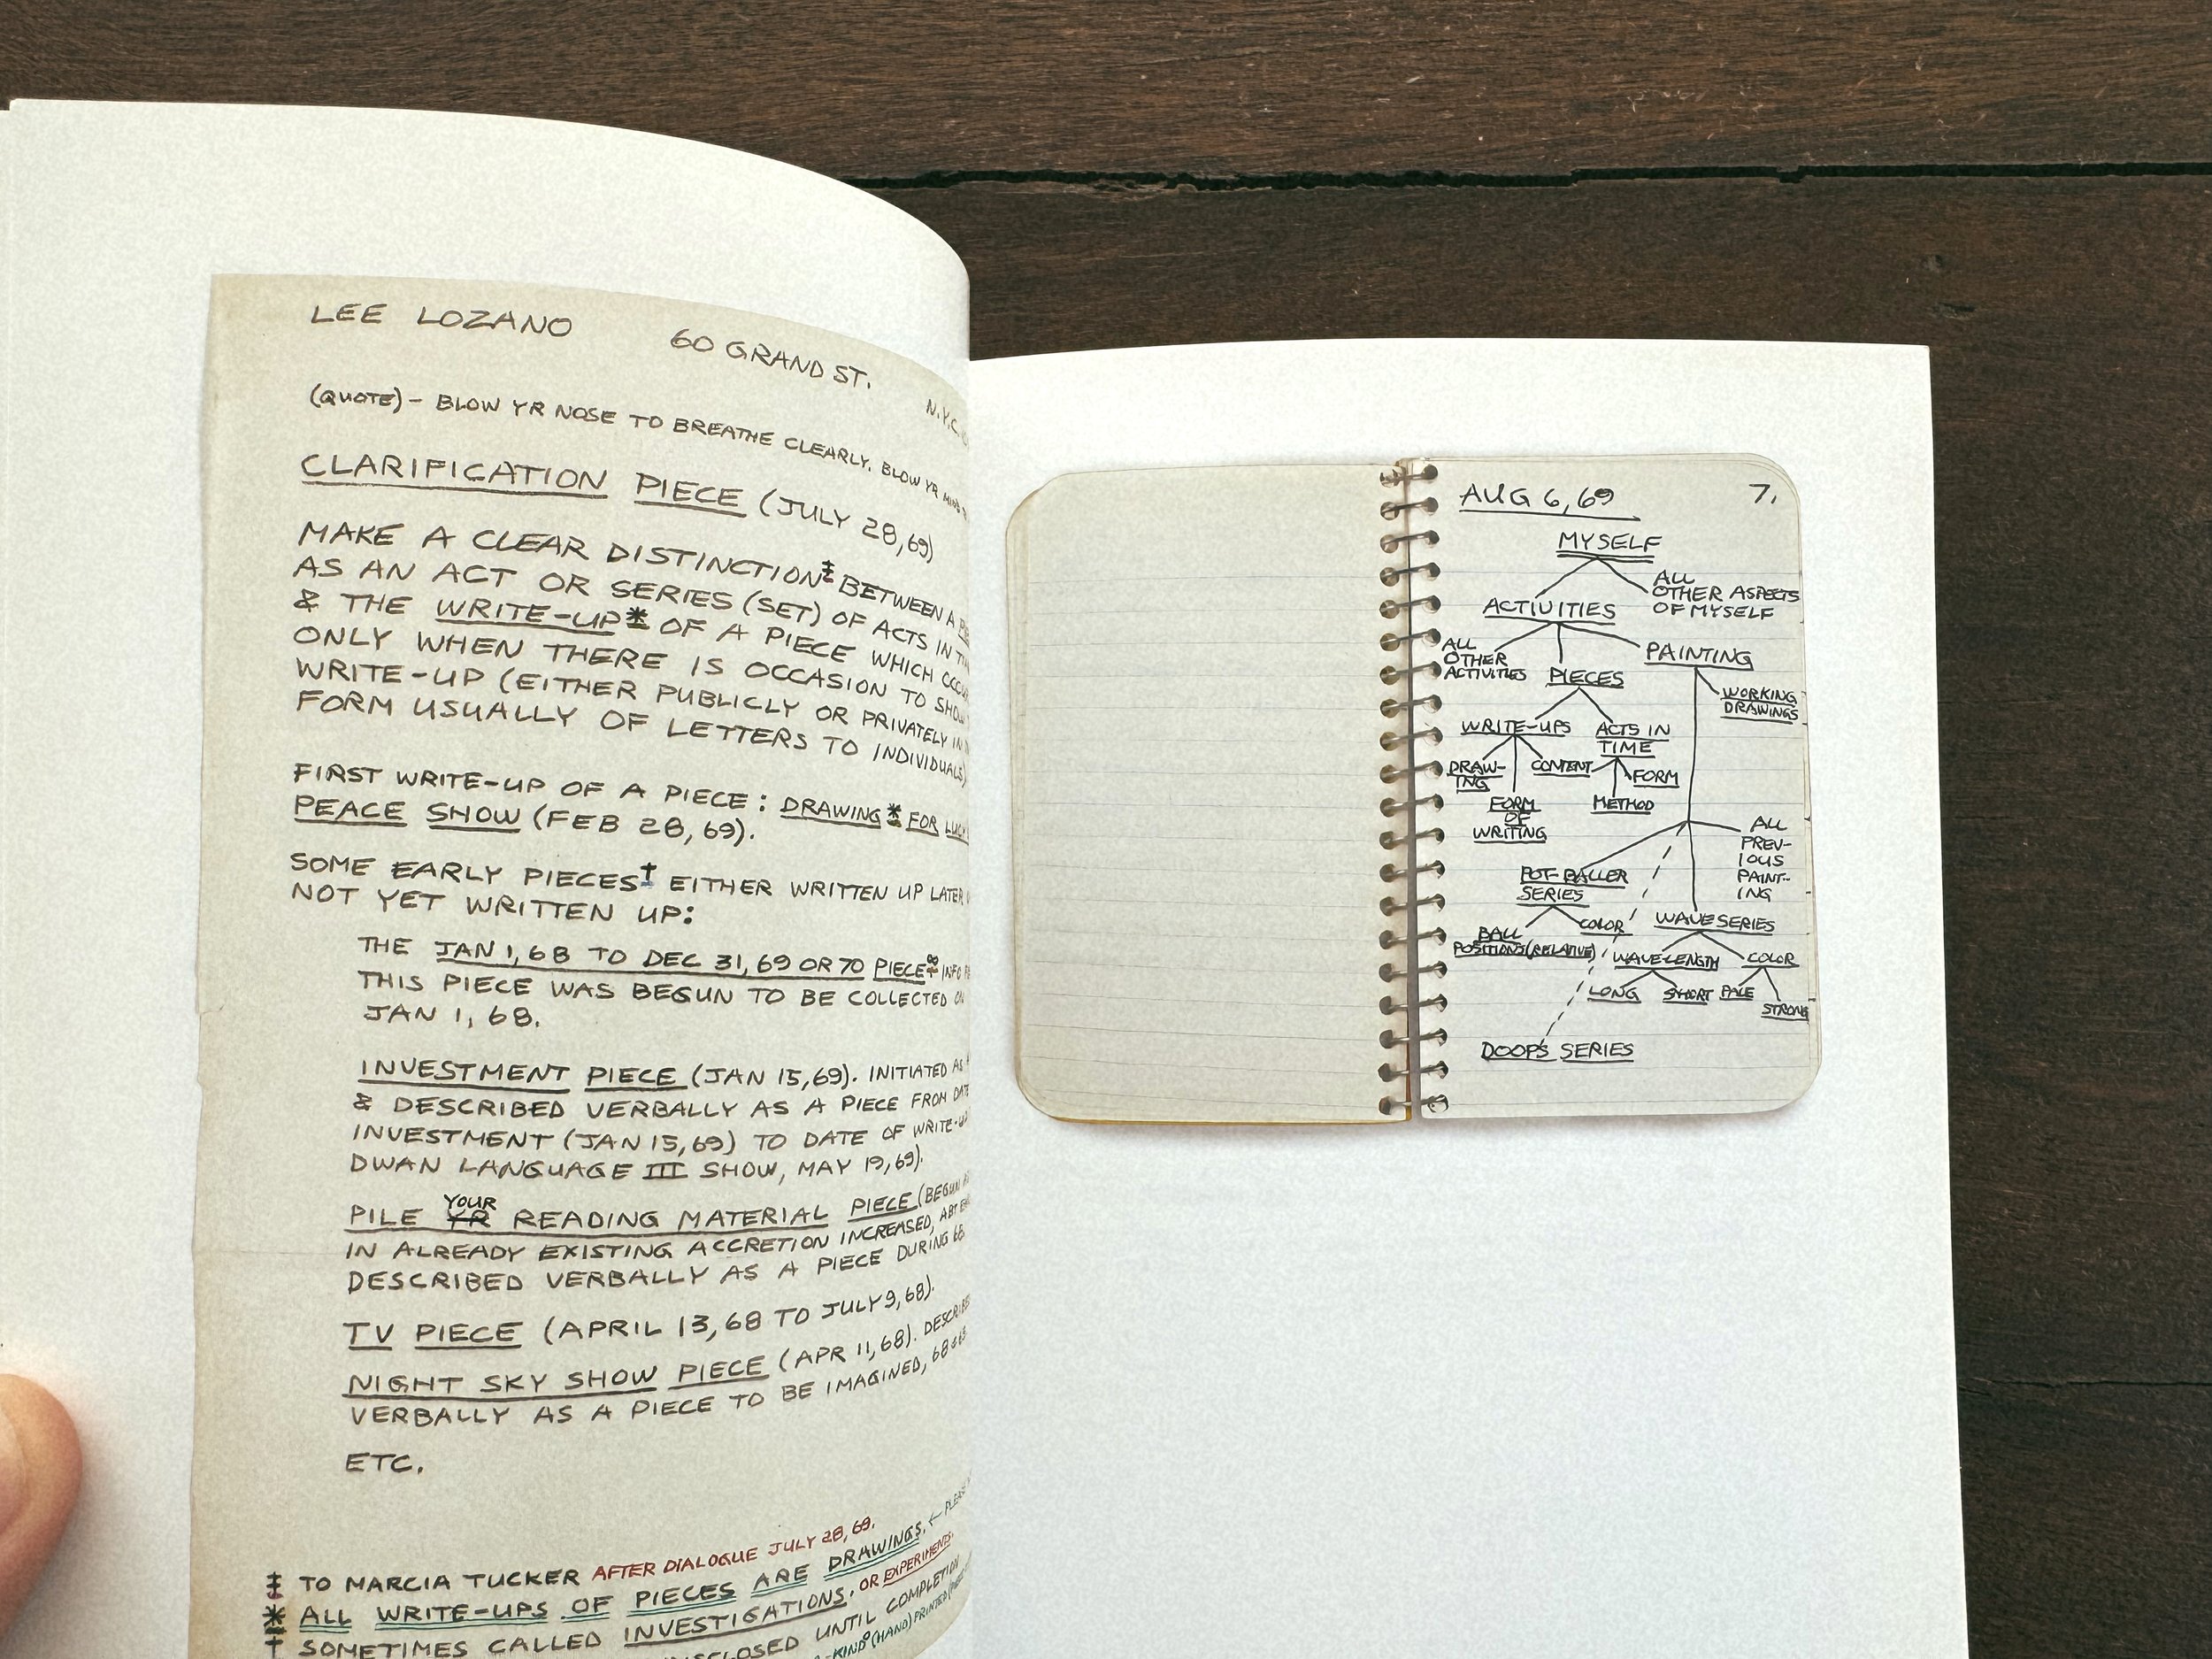 LEE LOZANO 60 GRAND ST. N.Y.C.
(QUOTE) - BLOW YR NOSE TO BREATHE CLEARLY. BLOW YR MIND
CLARIFICATION PIECE (JULY 28, 69)
MAKE A CLEAR DISTINCTION‡ BETWEEN A
AS AN ACT OR SERIES (SET) OF ACTS IN
& THE WRITE-UP* OF A PIECE WHICH
ONLY WHEN THERE IS OCCASION TO SHOW
WRITE-UP (EITHER PUBLICLY OR PRIVATELY IN
FORM USUALLY OF LETTERS TO INDIVIDUALS)
FIRST WRITE-UP OF A PIECE: DRAWING* FOR
PEACE SHOW (FEB 28, 69).
SOME EARLY PIECES† EITHER WRITTEN UP LATER
NOT YET WRITTEN UP:
THE JAN 1, 68 TO DEC 31, 69 OR 70 PIECE INFO
THIS PIECE WAS BEGUN TO BE COLLECTED
JAN 1, 68.
INVESTMENT PIECE (JAN 15, 69). INITIATED AS
& DESCRIBED VERBALLY AS A PIECE FROM DATE
INVESTMENT (JAN 15, 69) TO DATE OF WRITE-UP
DWAN LANGUAGE III SHOW, MAY 19, 69).
YOUR
PILE YR READING MATERIAL PIECE (BEGUN
IN ALREADY EXISTING ACCRETION INCREASED, ABT
DESCRIBED VERBALLY AS A PIECE DURING 68
TV PIECE (APRIL 13, 68 TO JULY 9, 68).
NIGHT SKY SHOW PIECE (APR 11, 68). DESCRIBED
VERBALLY AS A PIECE TO BE IMAGINED, 68 &
ETC.
‡ TO MARCIA TUCKER AFTER DIALOGUE JULY 28, 69.
* ALL WRITE-UPS OF PIECES ARE DRAWINGS. ←
† SOMETIMES CALLED INVESTIGATIONS. OR EXPERIMENTS.
UNTIL COMPLETION
KIND (HAND) PRINTED
AUG 6, 69 7.
MYSELF
ALL
OTHER ASPECTS
OF MYSELF
ACTIVITIES
ALL
OTHER
ACTIVITIES
PIECES
PAINTING
WORKING
DRAWINGS
WRITE-UPS
ACTS IN
TIME
DRAW-
ING
CONTENT
FORM
FORM
OF
WRITING
METHOD
ALL
PREV-
IOUS
PAINT-
ING
POT-BALLER
SERIES
BALL
POSITIONS (RELATIVE)
COLOR
WAVE SERIES
WAVE-LENGTH
COLOR
LONG
SHORT
PALE
STRONG
DOOPS SERIES